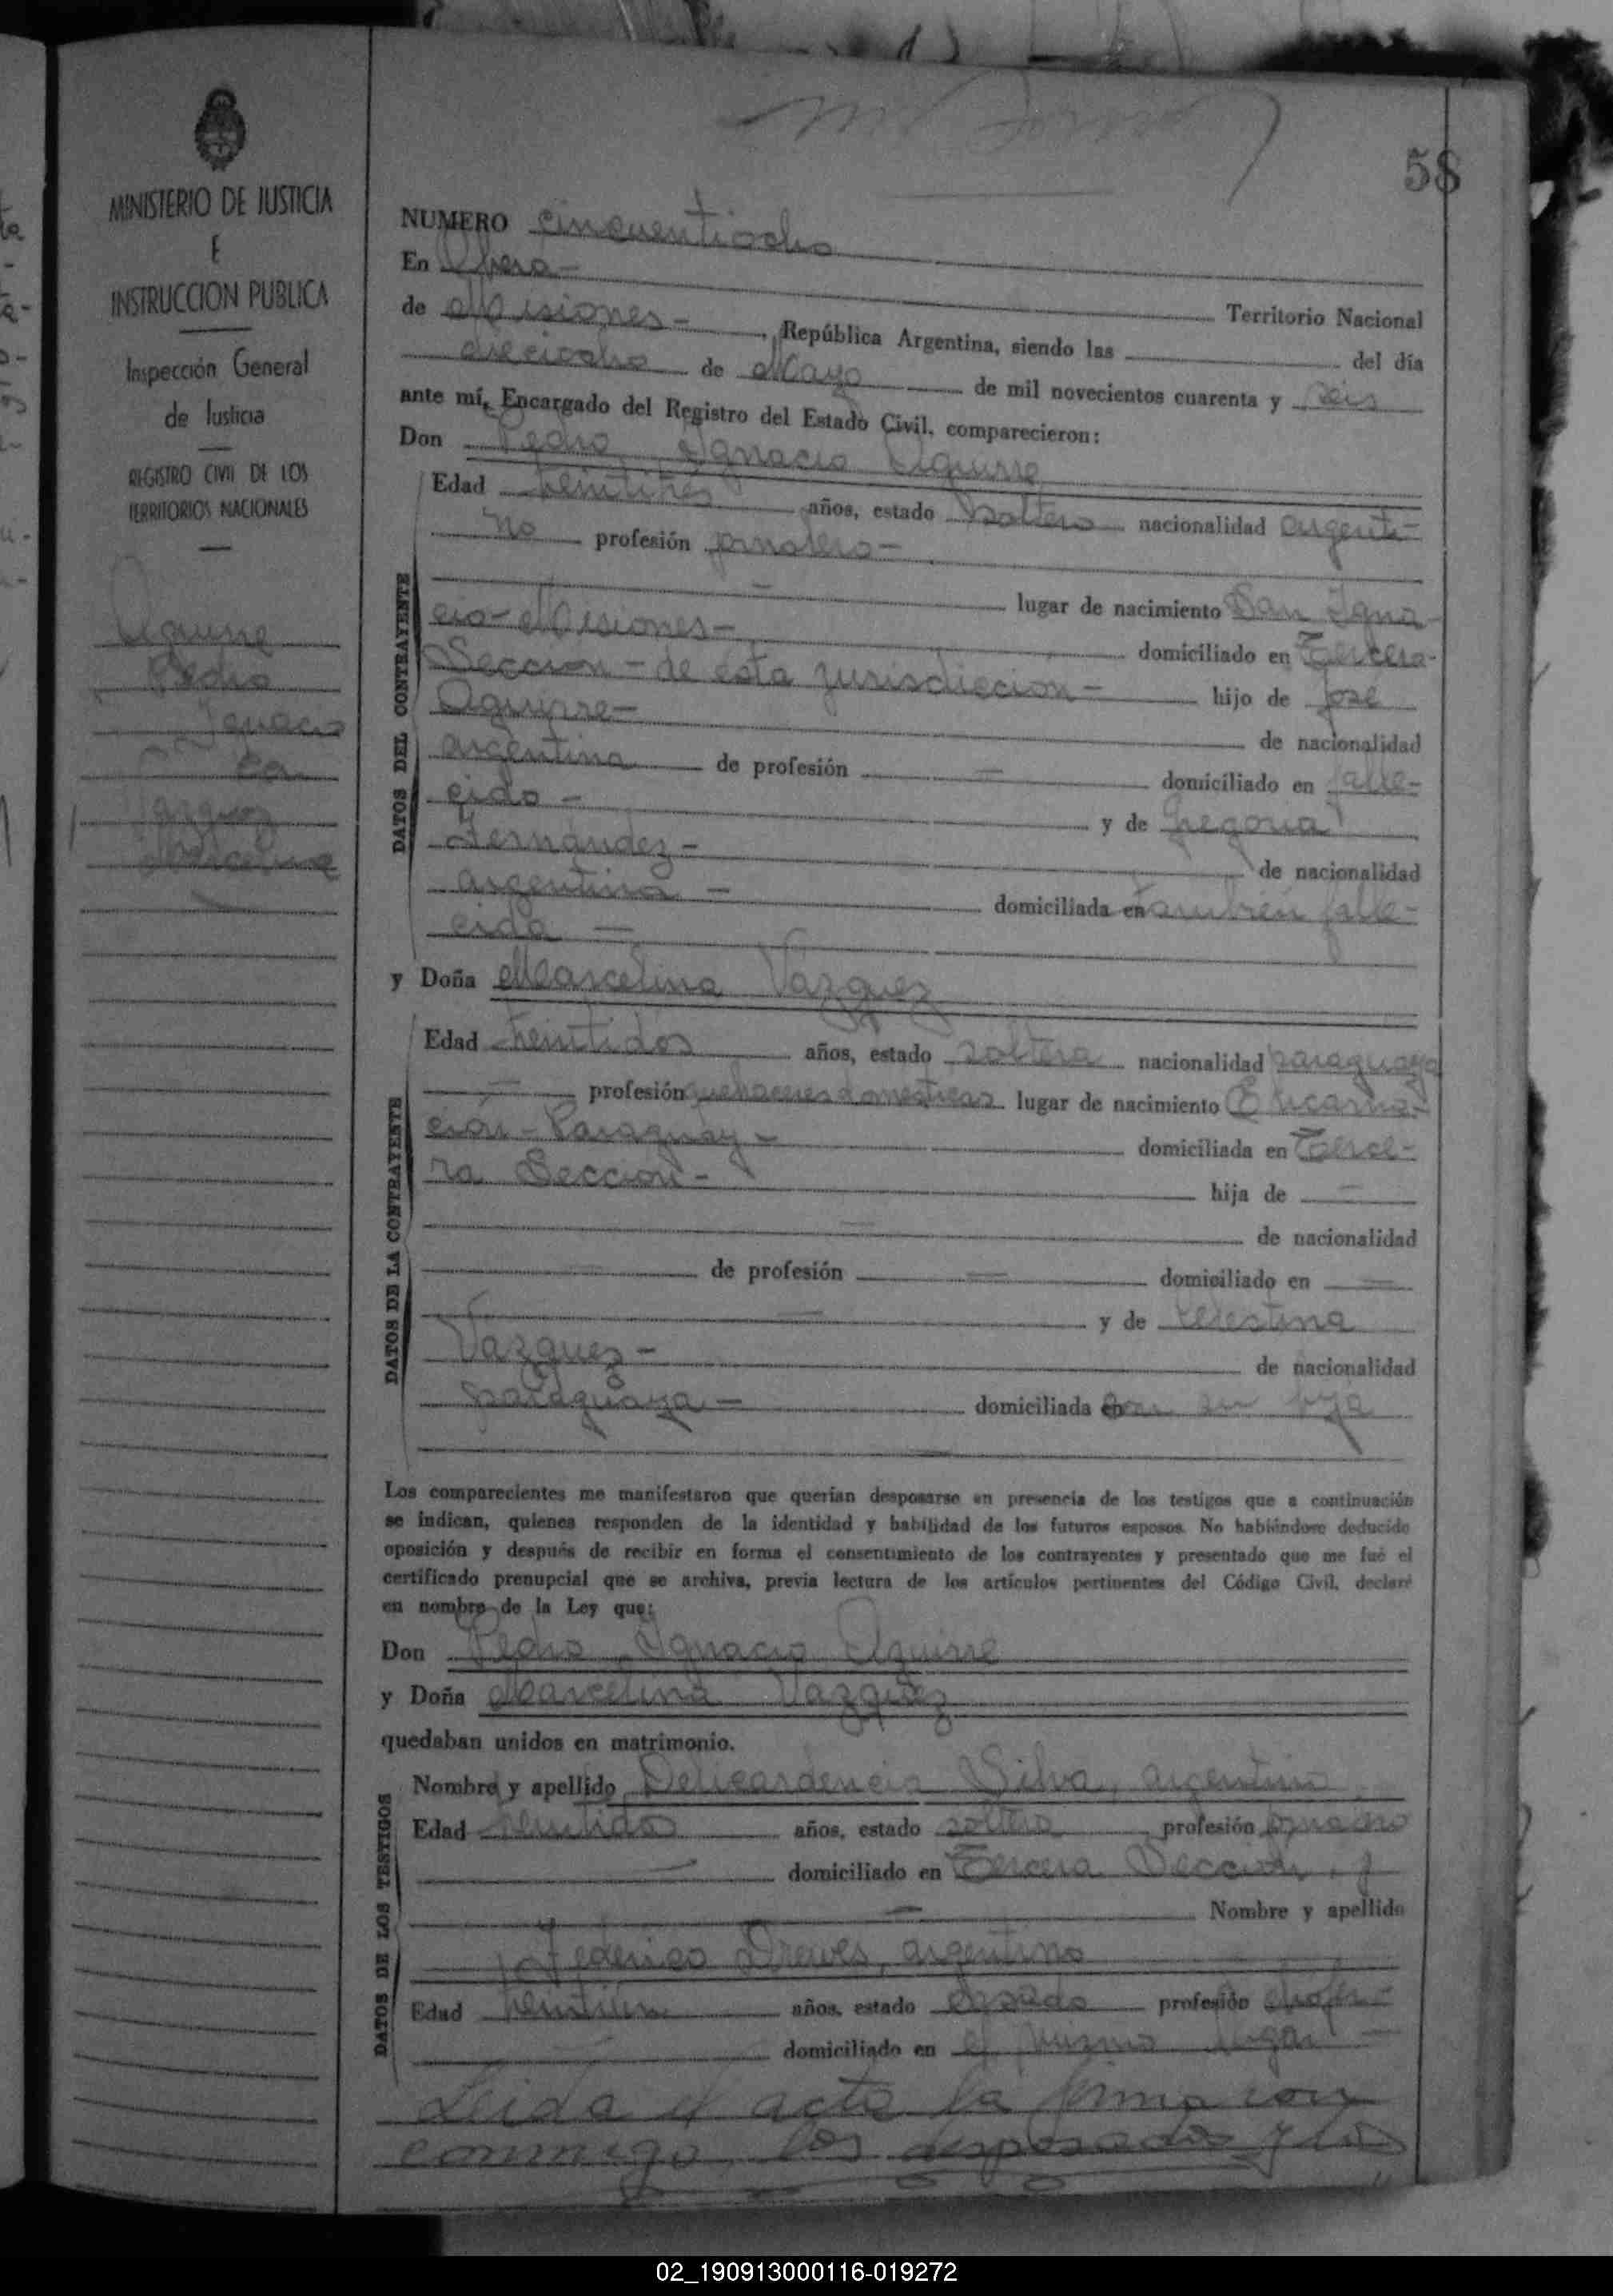 58
MINISTERIO DE JUSTICIA
E
INSTRUCCION PUBLICA
Inspección General
de Justicia
REGISTRO CIVIL DE LOS
TERRITORIOS NACIONALES
Aguirre
Pedro
Ignacio
con
Vazquez
Marcelina
NUMERO cincuentiocho
En Obera-
Territorio Nacional
de Misiones-, República Argentina, siendo las del día
dieciocho de Mayo de mil novecientos cuarenta y seis
ante mí, Encargado del Registro del Estado Civil, comparecieron:
Don Pedro Ignacio Aguirre
DATOS DEL CONTRAYENTE
Edad treintitres años, estado soltero nacionalidad argenti-
no profesión jornalero-
lugar de nacimiento San Igna-
cio-Misiones- domiciliado en Tercera-
Sección-de esta jurisdiccion- hijo de José
Aguirre- de nacionalidad
argentina de profesión — domiciliado en falle-
cido- y de Gregoria
Fernández- de nacionalidad
argentina- domiciliada en también falle-
cida —
y Doña Marcelina Vazquez
DATOS DE LA CONTRAYENTE
Edad años, estado soltera nacionalidad paraguaya
— profesión quehaceres domesticos lugar de nacimiento Encarna-
ción-Paraguay- domiciliada en Terce-
ra Sección- hija de —
— de nacionalidad
— de profesión — domiciliado en —
— y de Celestina
Vazquez- de nacionalidad
paraguaya- domiciliada en con su hija
Los comparecientes me manifestaron que querían desposarse en presencia de los testigos que a continuación
se indican, quienes responden de la identidad y habilidad de los futuros esposos. No habiéndose deducido
oposición y después de recibir en forma el consentimiento de los contrayentes y presentado que me fué el
certificado prenupcial que se archiva, previa lectura de los artículos pertinentes del Código Civil, declaré
en nombre de la Ley que:
Don Pedro Ignacio Aguirre
y Doña Marcelina Vazquez
quedaban unidos en matrimonio.
DATOS DE LOS TESTIGOS
Nombre y apellido Silva, argentino
Edad años, estado soltero profesión
— domiciliado en Tercera Sección, y
— Nombre y apellido
Federico Drewes, argentino
Edad años, estado casado profesión chofer-
— domiciliado en el mismo lugar-
Leida el acta la firma con
conmigo los desposados y los
02_190913000116-019272